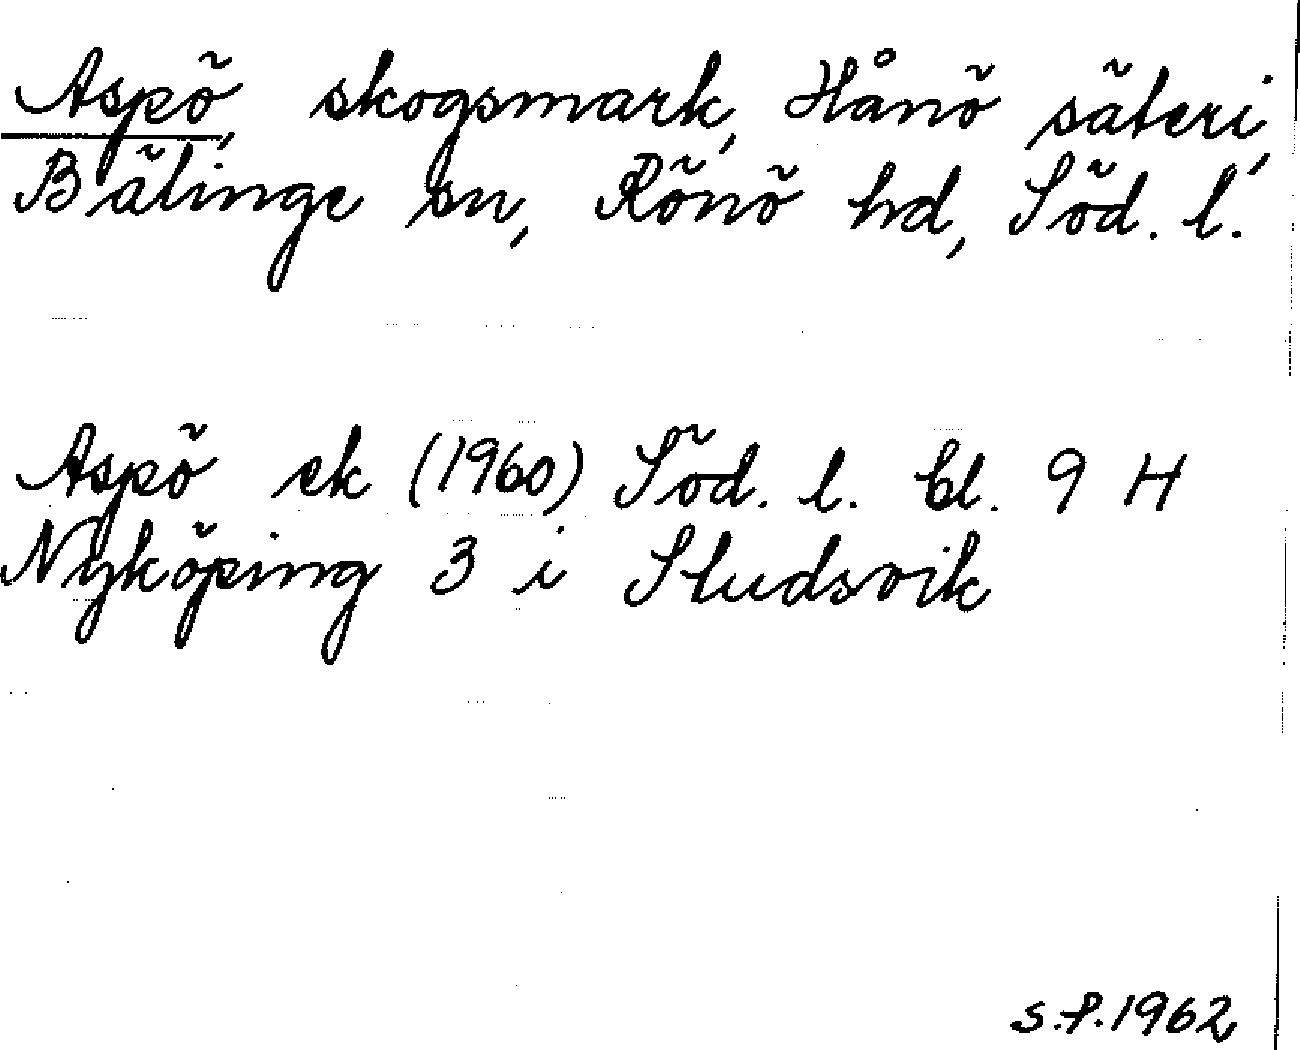 Aspö, skogsmark, Hånö säteri,
Bälinge sn, Rönö hd, Söd. l.
Aspö ek (1960) Söd. l. bl. 9 H
Nyköping 3 i Studsvik
s.f. 1962